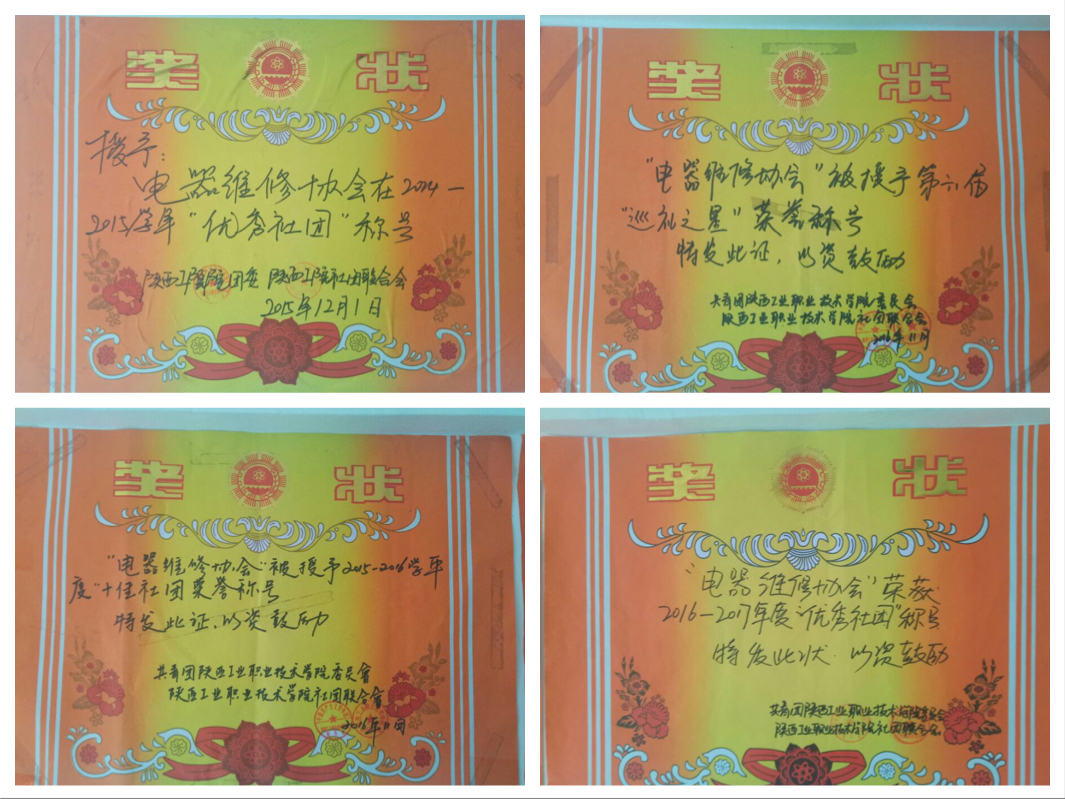 奖 状
授予:
电器维修协会在2014—
2015学年"优秀社团"称号
陕西工院团委 陕西工院社团联合会
2015年12月1日
奖 状
"电器维修协会"被授予第六届
"巡礼之星"荣誉称号
特发此证,以资鼓励
共青团陕西工业职业技术学院委员会
陕西工业职业技术学院社团联合会
2016年11月
奖 状
"电器维修协会"被授予2015-2016学年
度"十佳社团荣誉称号
特发此证,以资鼓励
共青团陕西工业职业技术学院委员會
陕西工业职业技术学院社团联合會
2016年11月
奖 状
"电器维修协会"荣获
2016—2017年度"优秀社团"称号
特发此状.以资鼓励
共青团陕西工业职业技术学院委员会
陕西工业职业技术学院社团联合会